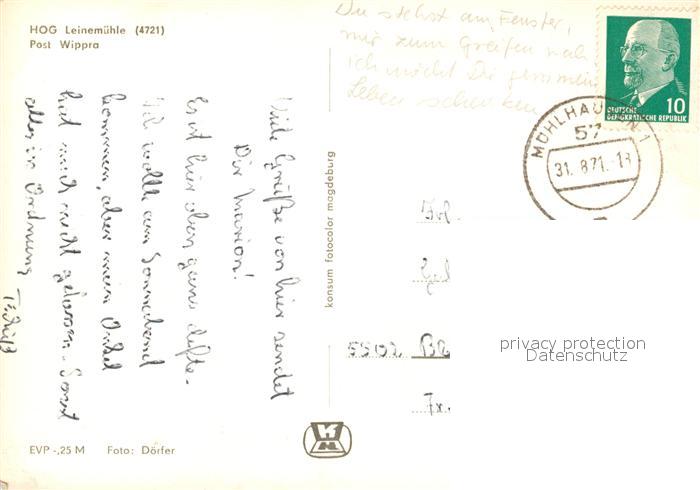 HOG Leinemühle (4721)
Post Wippra
Du stehst am Fenster,
mir zum Greifen nah
ich möcht Dir
Leben schenken
10
DEUTSCHE
DEMOKRATISCHE REPUBLIK
MÜHLHAUSEN 1
57
31. 8.71.-18
Viele Grüße von hier sendet
Dir Marion!
Es ist hier oben ganz dufte.
Ich wollte am Sonnabend
kommen, aber mein Onkel
hat mich nicht gelassen. Sonst
alles in Ordnung
Tschüß
konsum fotocolor magdeburg
5502
privacy protection
Datenschutz
EVP -,25 M Foto: Dörfer